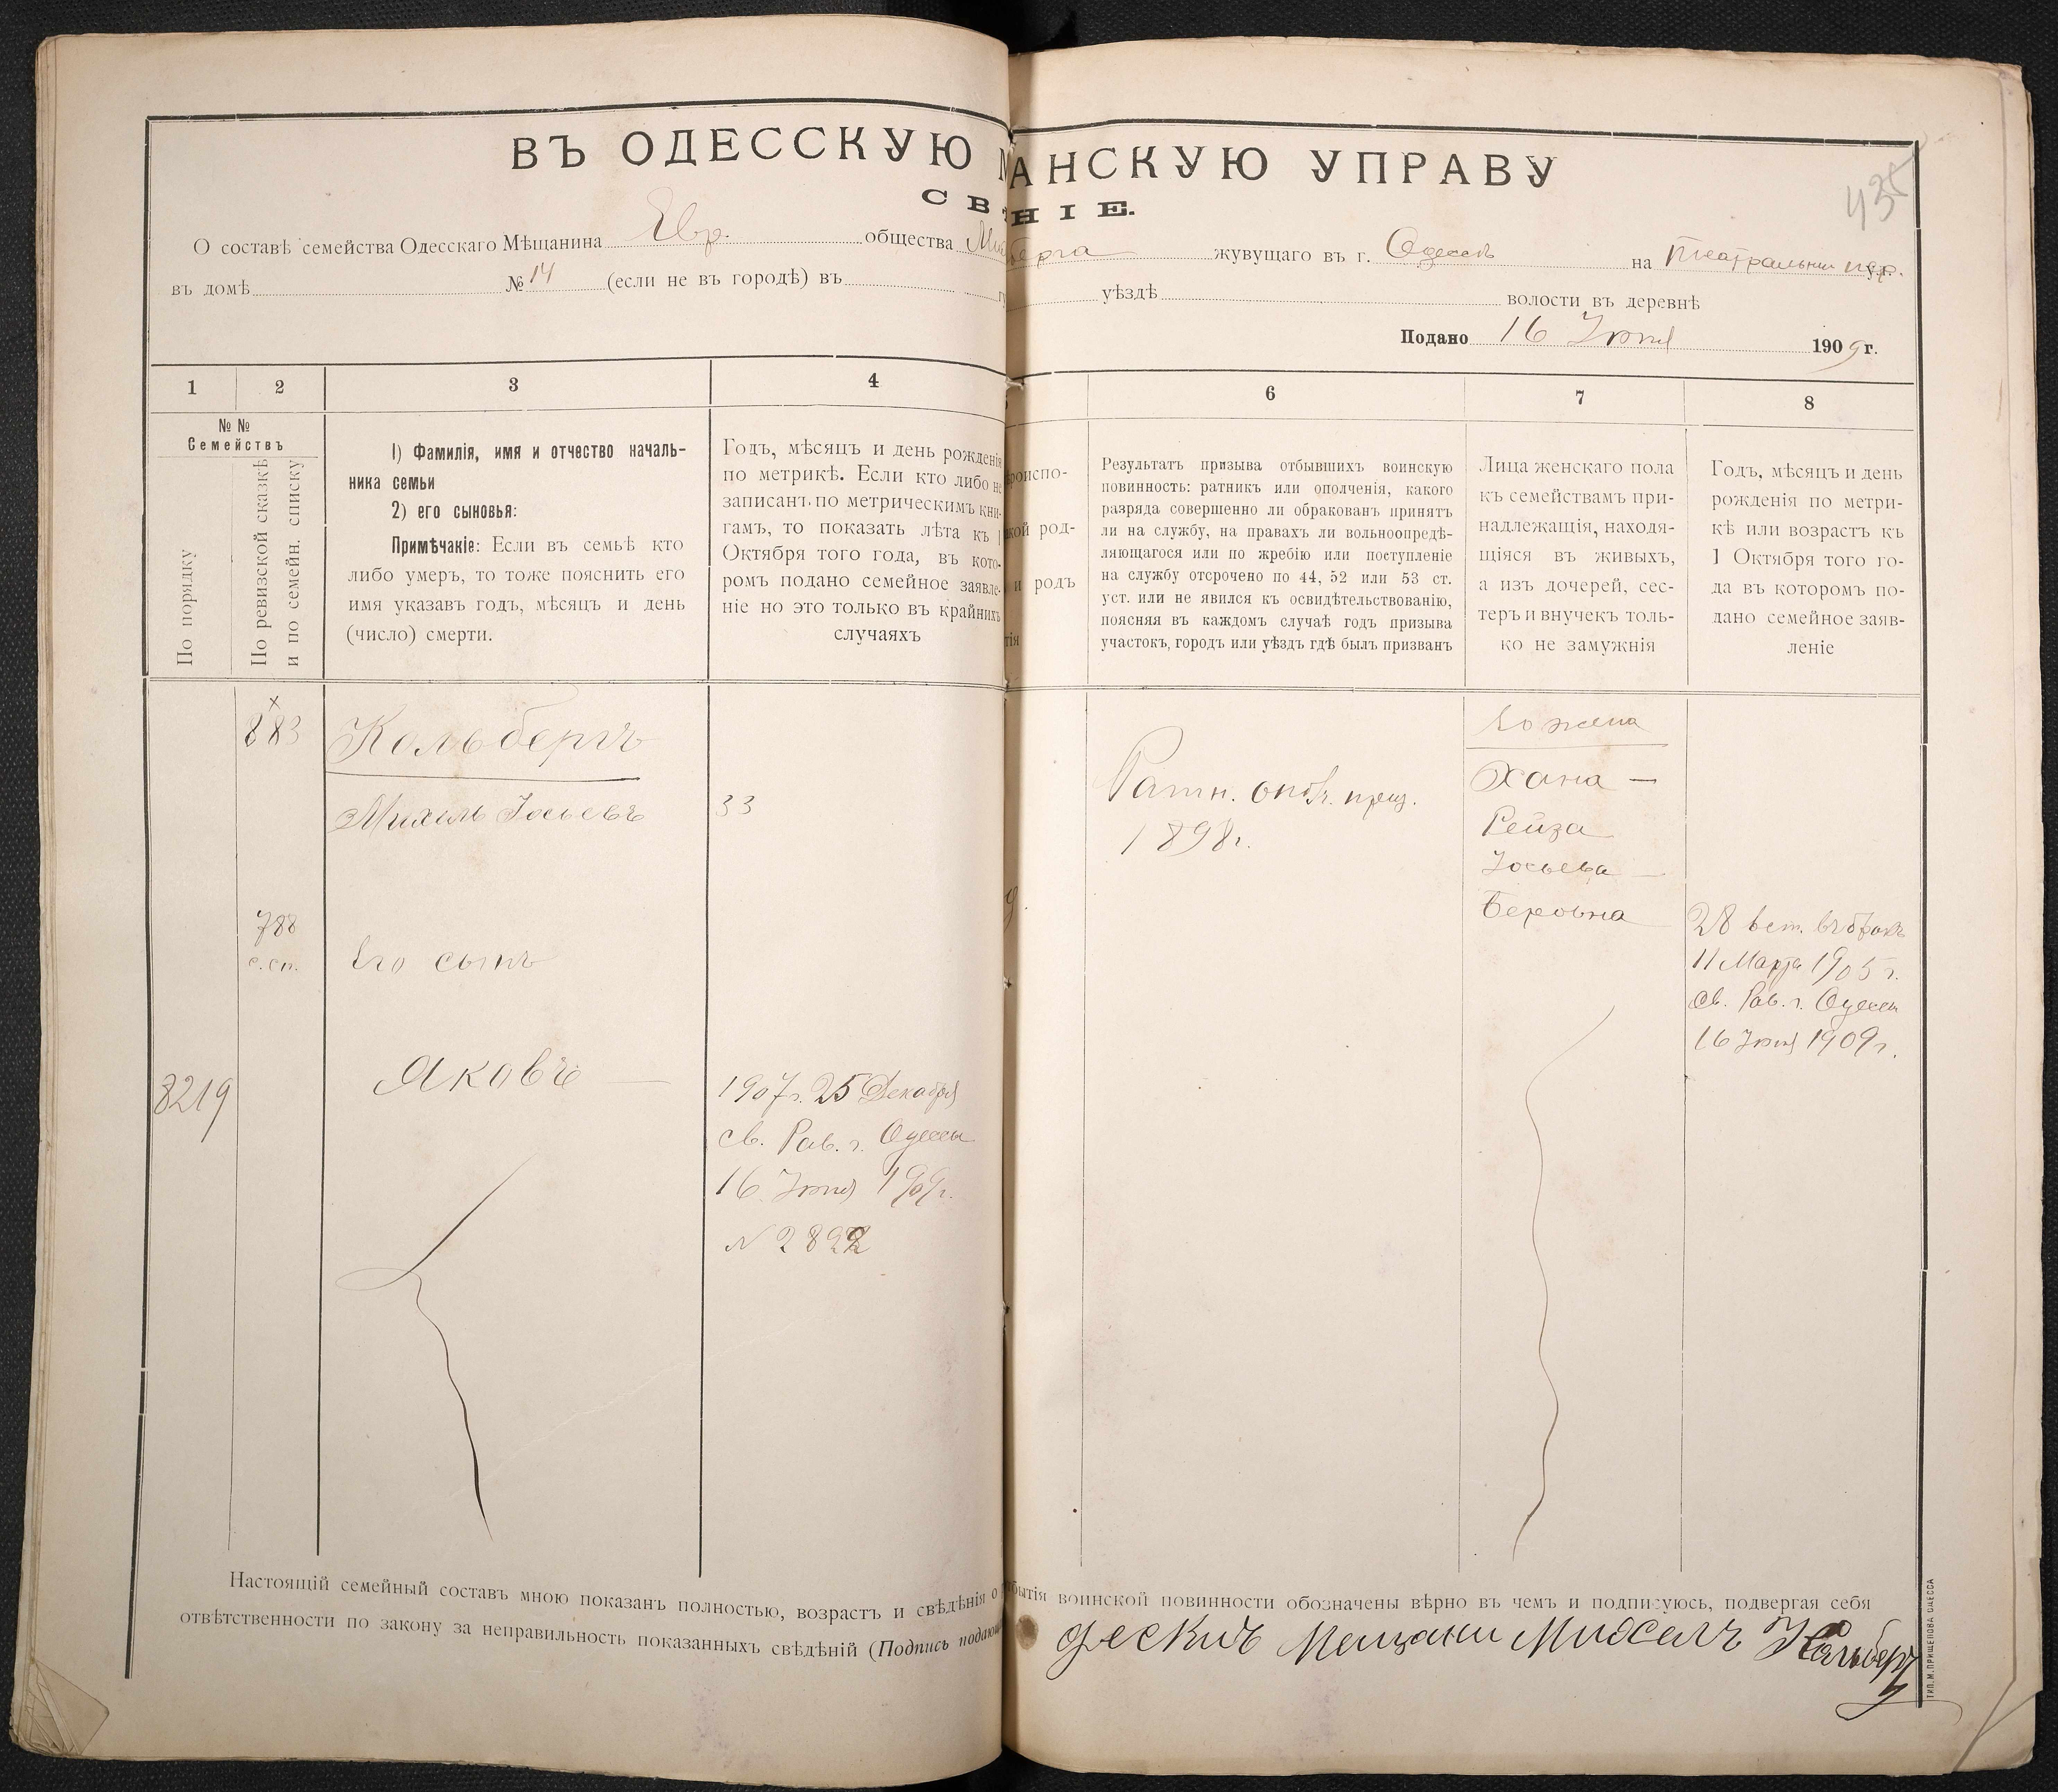 435
ВЪ ОДЕССКУЮ М АНСКУЮ УПРАВУ
СВѢ НІЕ.
О составѣ семейства Одесскаго Мѣщанина Евр. общества Ми берга жувущаго въ г. Одессѣ на Театральный пер. ул.
въ домѣ № 14 (если не въ городѣ) въ уѣздѣ волости въ деревнѣ
Подано 16 Іюня 1909 г.
1 2 3 4 6 7 8
№ №
Семействъ
По порядку
По ревизской сказкѣ
и по семейн. списку
1) Фамилія, имя и отчество началь-
ника семьи
2) его сыновья:
Примѣчакіе: Если въ семьѣ кто
либо умеръ, то тоже пояснить его
имя указавъ годъ, мѣсяцъ и день
(число) смерти.
Годъ, мѣсяцъ и день рожденія
по метрикѣ. Если кто либо не
записанъ по метрическимъ кни-
гамъ, то показать лѣта къ 1
Октября того года, въ кото-
ромъ подано семейное заявле-
ніе но это только въ крайнихъ
случаяхъ
ѣроиспо-
кой род-
и родъ
тія
Результатъ призыва отбывшихъ воинскую
повинность: ратникъ или ополченія, какого
разряда совершенно ли обракованъ принятъ
ли на службу, на правахъ ли вольноопредѣ-
ляющагося или по жребію или поступленіе
на службу отсрочено по 44, 52 или 53 ст.
уст. или не явился къ освидѣтельствованію,
поясняя въ каждомъ случаѣ годъ призыва
участокъ, городъ или уѣздъ гдѣ былъ призванъ
Лица женскаго пола
къ семействамъ при-
надлежащія, находя-
щіяся въ живыхъ,
а изъ дочерей, сес-
теръ и внучек толь-
ко не замужнія
Годъ, мѣсяцъ и день
рожденія по метри-
кѣ или возрастъ къ
1 Октября того го-
да въ которомъ по-
дано семейное заяв-
леніе
883
Кольбергъ
Михель Іосьевъ
33
788
с.сп.
Его сынъ
3219
Яковъ
1907г. 25 Декабря
св. Рав. г. Одессы
16 Іюня 1909г.
N 2892
Ратн. опол. приз.
1898г.
Его жена
Хана —
Рейза
Іосьева —
Беровна
28 вст. въ бракъ
11 Марта 1905 г.
св. Рав. г. Одессы
16 Іюня 1909г.
Настоящій семейный составъ мною показанъ полностью, возрастъ и свѣдѣнія о бытія воинской повинности обозначены вѣрно въ чемъ и подписуюсь, подвергая себя
отвѣтственности по закону за неправильность показанныхъ свѣдѣній (Подпись подающ
Мещани Михелъ Кольберг
ТИП. М. ПРИЩЕПОВА ОДЕССА